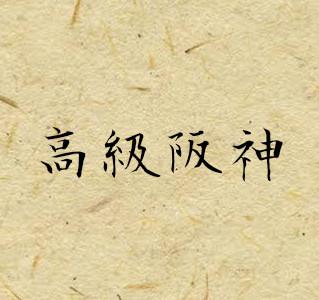 高級阪神